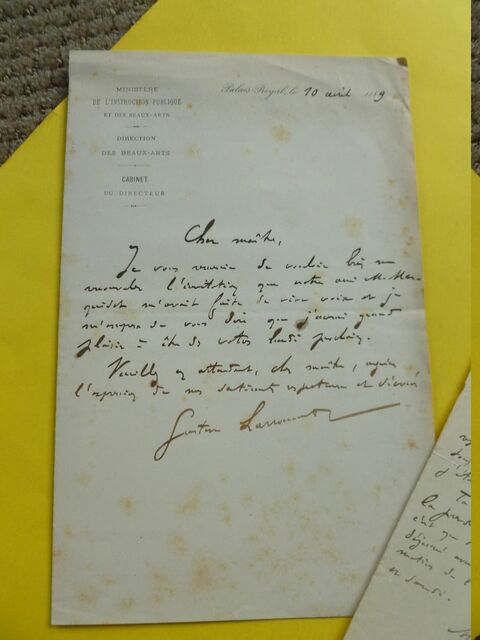 MINISTÈRE
DE L'INSTRUCTION PUBLIQUE
ET DES BEAUX-ARTS
DIRECTION
DES BEAUX-ARTS
CABINET
DU DIRECTEUR
Palais-Royal, le 10 avril 1889
Cher maître,
Je vous remercie de vouloir bien me
renouveler l'invitation que notre ami M. Mar-
quest m'avait faite de vive voix et je
m'empresse de vous dire que j'aurai grand
plaisir à être des vôtres lundi prochain.
Veuillez en attendant, cher maître, agréer
l'expression de mes sentiments respectueux et dévoués
Gustave Larroumet
d'
Ta
la
c'est que
déjeuner
matin de l